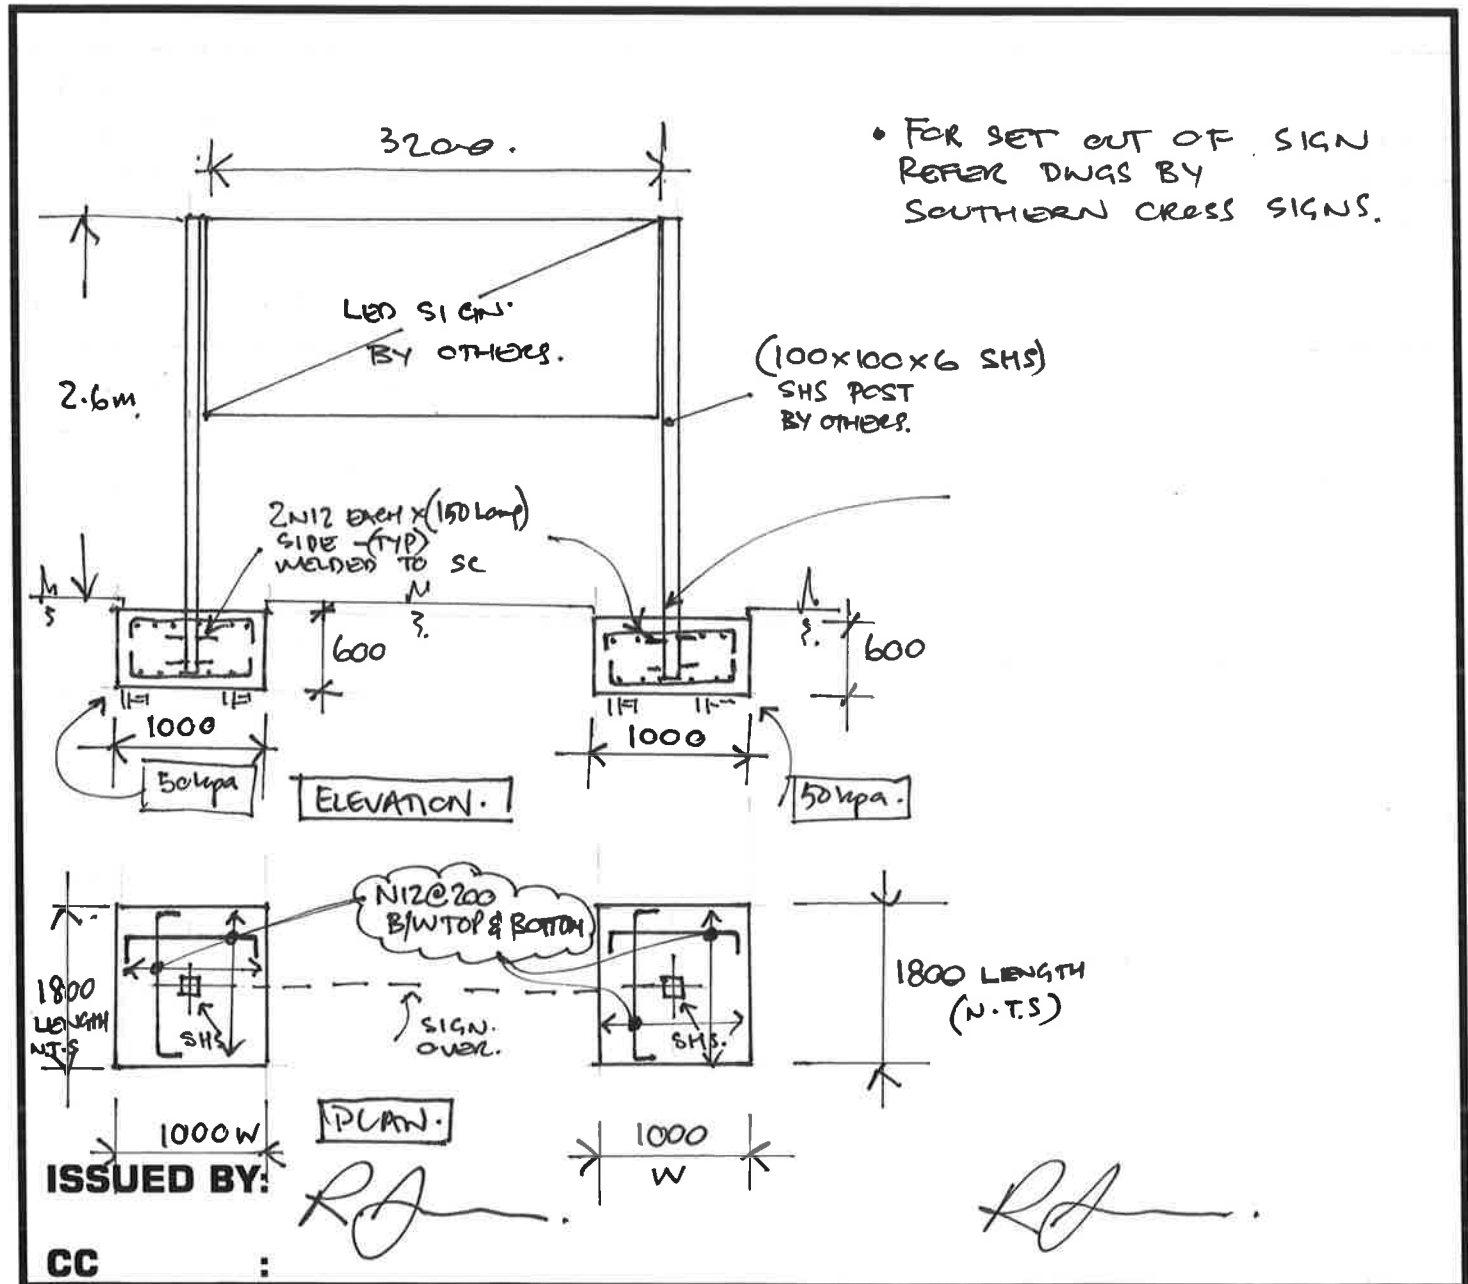 3200.
• FOR SET OUT OF SIGN
REFER DWGS BY
SOUTHERN CROSS SIGNS.
LED SIGN.
BY OTHERS.
2.6m.
(100x100x6 SHS)
SHS POST
BY OTHERS.
2N12 EACH x (150 Long)
SIDE -(TYP)
WELDED TO SC
600
600
1000
1000
50kpa
ELEVATION.
50kpa.
N12@200
B/W TOP & BOTTOM
1800
LENGTH
N.T.S
SHS
SIGN.
OVER.
SHS.
1800 LENGTH
(N.T.S)
1000 W
PLAN.
1000
W
ISSUED BY:
CC :